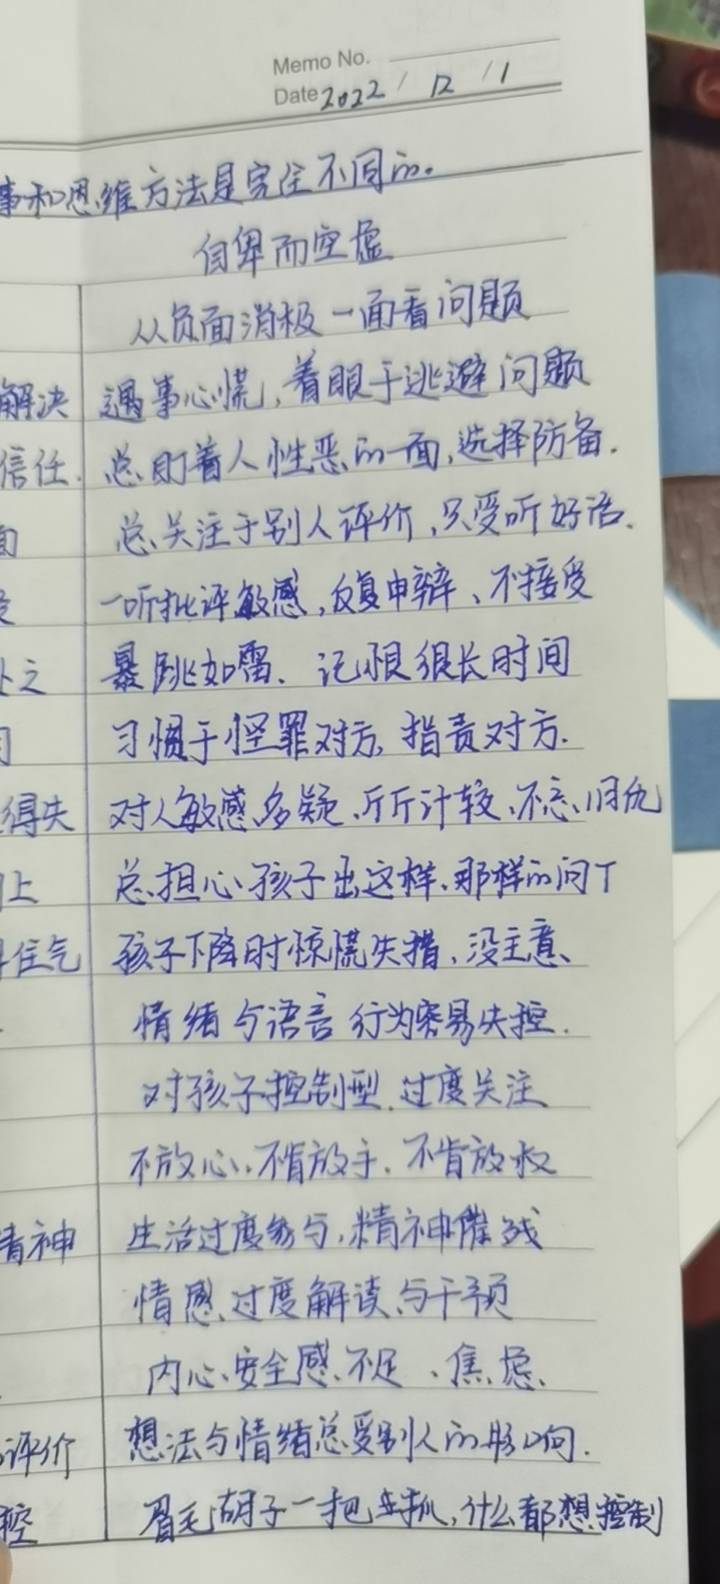 Memo No.
Date 2022 / 12 / 1
事和思维方法是完全不同的。
自卑而空虚
从负面消极一面看问题
解决 遇事心慌,着眼于逃避问题
信任. 总盯着人性恶的一面,选择防备.
面 总关注于别人评价,只爱听好话.
一听批评敏感,反复申辩、不接受
处之 暴跳如雷、记恨很长时间
习惯于怪罪对方,指责对方.
得失 对人敏感多疑、斤斤计较、不忘旧仇
上 总担心孩子出这样、那样的问丁
住气 孩子下降时惊慌失措、没主意、
情绪与语言行为容易失控.
对孩子控制型、过度关注
不放心、不肯放手、不肯放权
精神 生活过度参与,精神摧残
情感过度解读与干预
内心安全感不足、焦虑、
评价 想法与情绪总受别人的影响.
控 眉毛胡子一把抓,什么都想控制